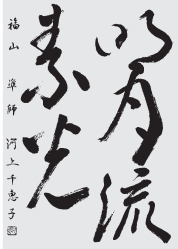 明月流
素光
福山 準師 河上千恵子